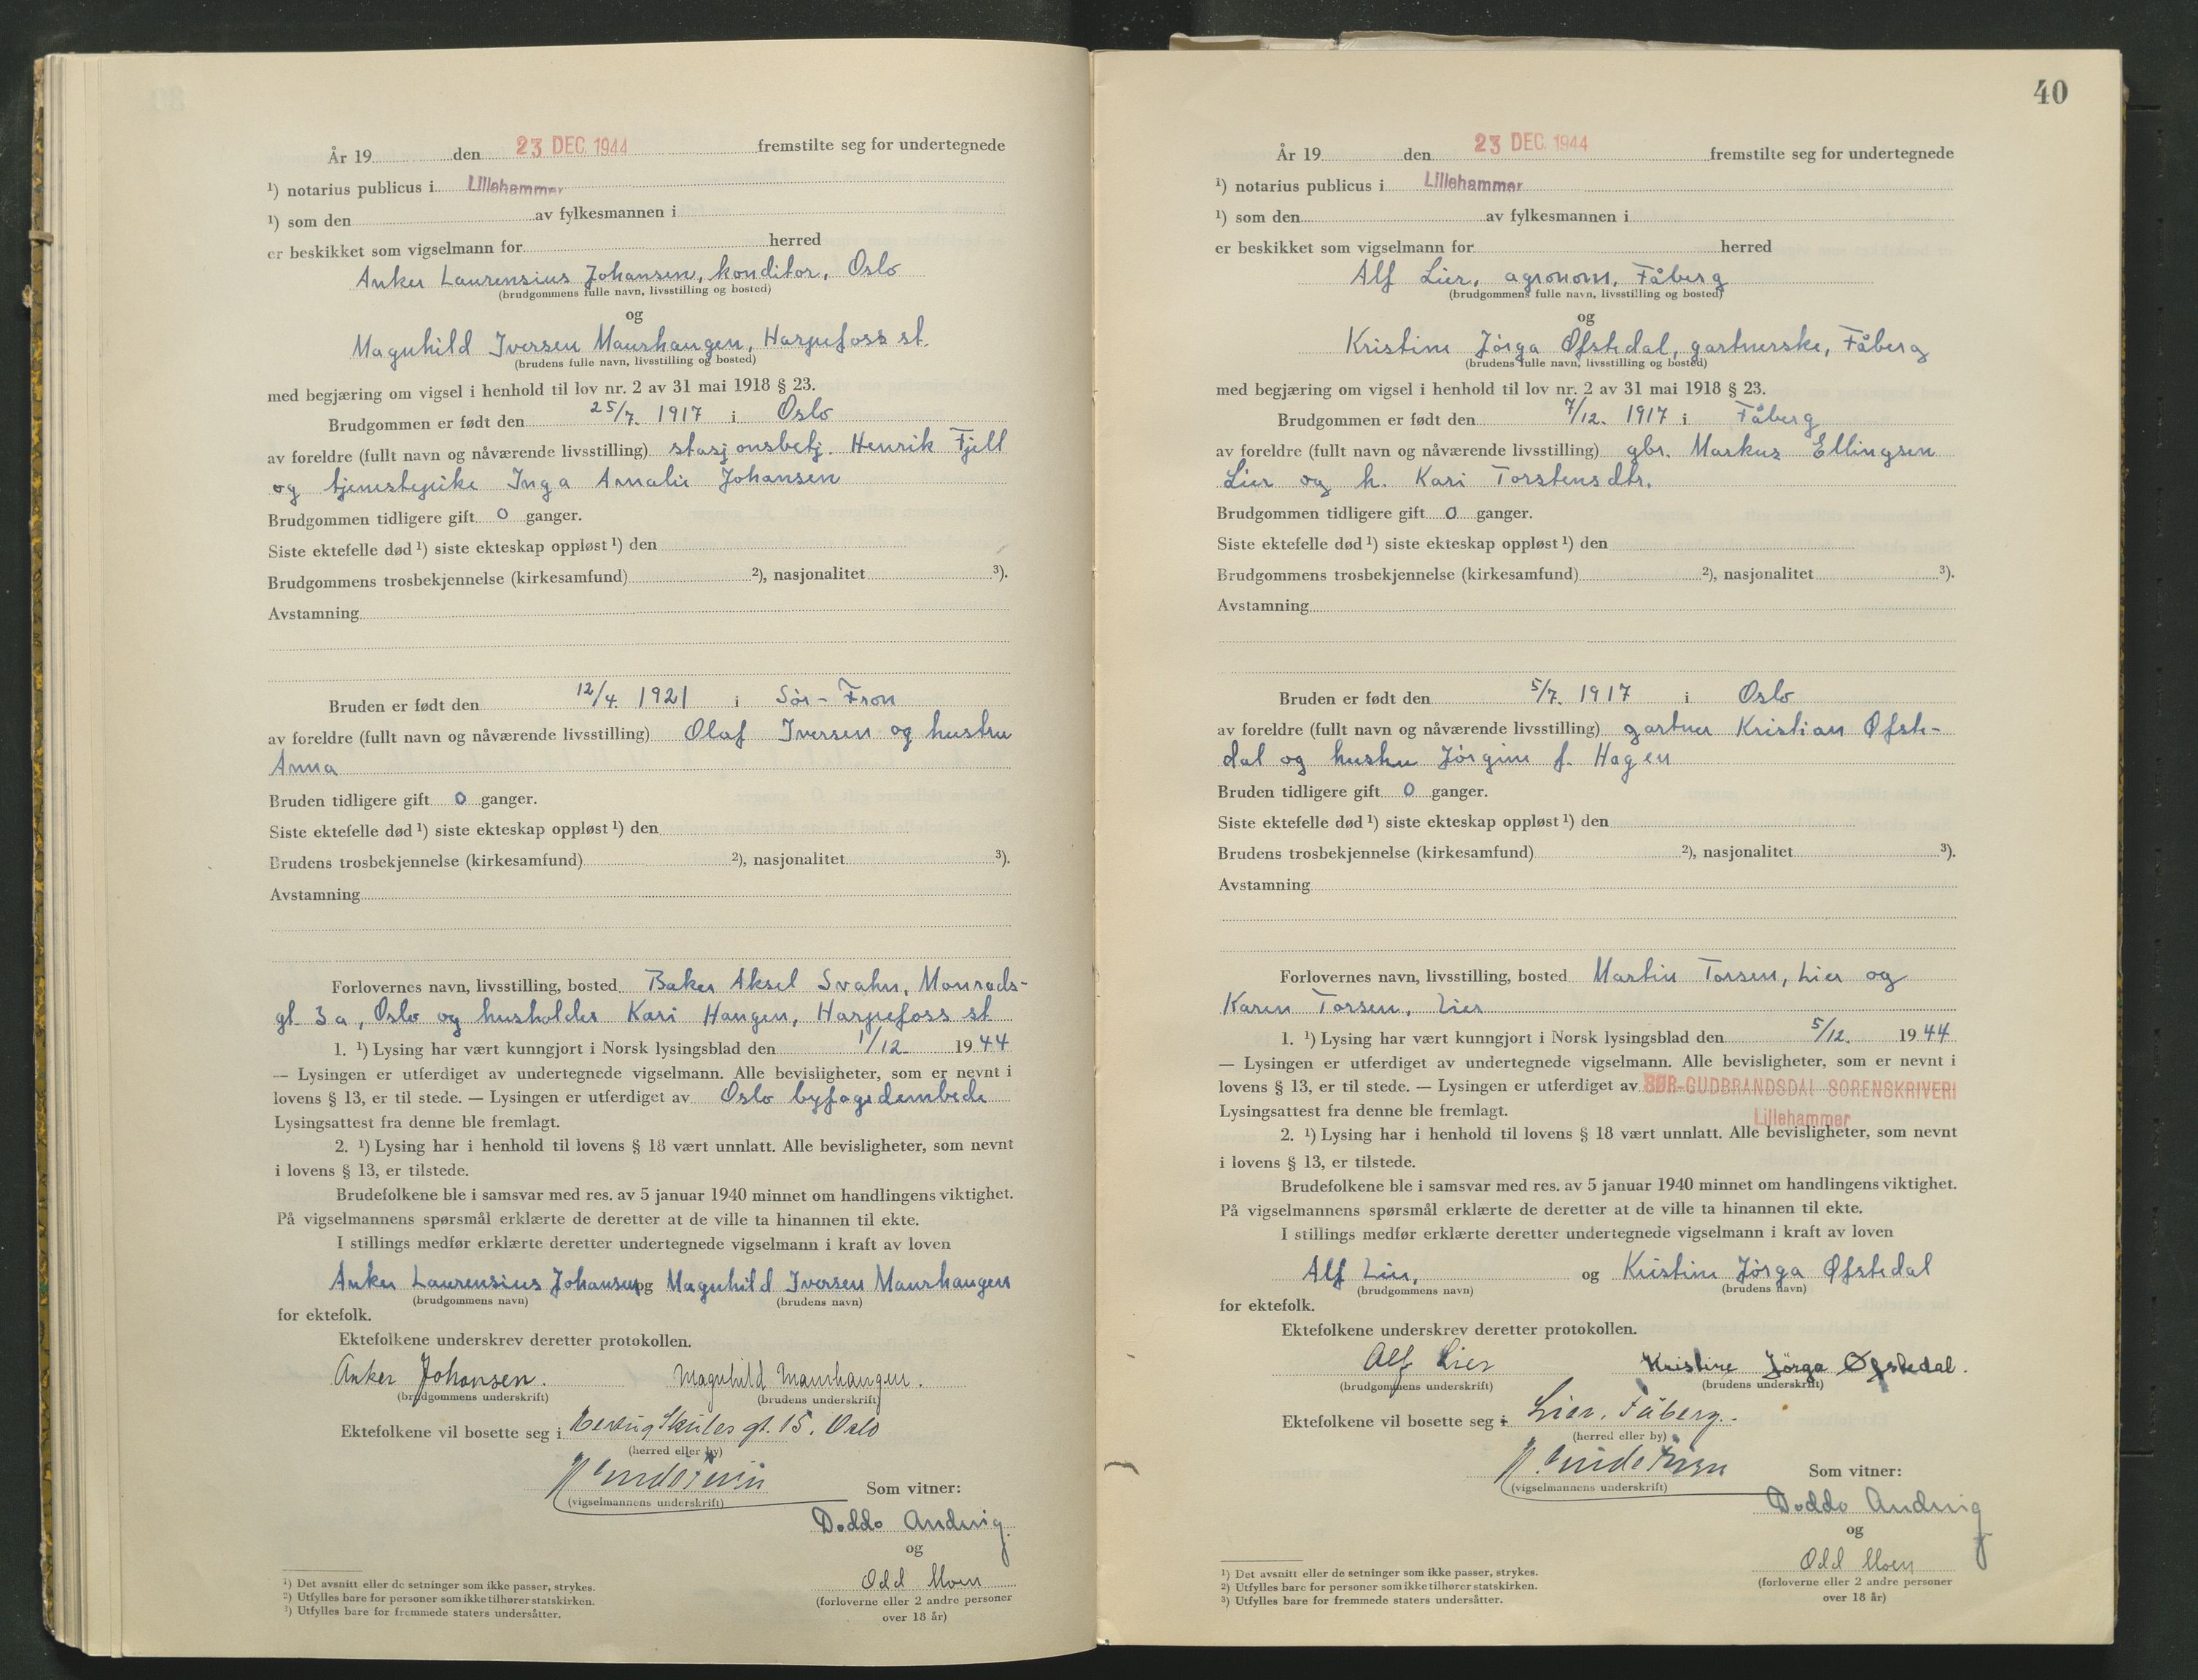 År 19 den 23 DEC. 1944 fremstilte seg for undertegnede
¹) notarius publicus i Lillehammer
¹) som den av fylkesmannen i
er beskikket som vigselmann for herred
Anker Laurensius Johansen, konditor, Oslo
(brudgommens fulle navn, livsstilling og bosted)
og
Magnhild Iversen Maurhaugen, Harpefoss st.
(brudens fulle navn, livsstilling og bosted)
med begjæring om vigsel i henhold til lov nr. 2 av 31 mai 1918 § 23.
Brudgommen er født den 25/7. 1917 i Oslo
av foreldre (fullt navn og nåværende livsstilling) stasjonsbetj. Henrik Fjell
og tjenestepike Inga Amalie Johansen
Brudgommen tidligere gift 0 ganger.
Siste ektefelle død ¹) siste ekteskap oppløst ¹) den
Brudgommens trosbekjennelse (kirkesamfund) ²), nasjonalitet ³).
Avstamning
Bruden er født den 12/4. 1921 i Sør-Fron
av foreldre (fullt navn og nåværende livsstilling) Olaf Iversen og hustru
Anna
Bruden tidligere gift 0 ganger.
Siste ektefelle død ¹) siste ekteskap oppløst ¹) den
Brudens trosbekjennelse (kirkesamfund) ²), nasjonalitet ³).
Avstamning
Forlovernes navn, livsstilling, bosted Baker Aksel Svahn, Monrads-
gt. 3a, Oslo og husholder Kari Haugen, Harpefoss st
1. ¹) Lysing har vært kunngjort i Norsk lysingsblad den 1/12. 1944
— Lysingen er utferdiget av undertegnede vigselmann. Alle bevisligheter, som er nevnt i
lovens § 13, er til stede. — Lysingen er utferdiget av Oslo byfogdembede
Lysingsattest fra denne ble fremlagt.
2. ¹) Lysing har i henhold til lovens § 18 vært unnlatt. Alle bevisligheter, som nevnt
i lovens § 13, er tilstede.
Brudefolkene ble i samsvar med res. av 5 januar 1940 minnet om handlingens viktighet.
På vigselmannens spørsmål erklærte de deretter at de ville ta hinannen til ekte.
I stillings medfør erklærte deretter undertegnede vigselmann i kraft av loven
Anker Laurensius Johansen og Magnhild Iversen Maurhaugen
(brudgommens navn) (brudens navn)
for ektefolk.
Ektefolkene underskrev deretter protokollen.
Anker Johansen. Magnhild Maurhaugen.
(brudgommens underskrift) (brudens underskrift)
Ektefolkene vil bosette seg i Hertug Skules gt. 15. Oslo
(herred eller by)
Som vitner:
(vigselmannens underskrift)
Doddo Andvig
og
Odd Moen
(forloverne eller 2 andre personer
over 18 år)
¹) Det avsnitt eller de setninger som ikke passer, strykes.
²) Utfylles bare for personer som ikke tilhører statskirken.
³) Utfylles bare for fremmede staters undersåtter.
40
År 19 den 23 DEC. 1944 fremstilte seg for undertegnede
¹) notarius publicus i Lillehammer
¹) som den av fylkesmannen i
er beskikket som vigselmann for herred
Alf Lier, agronom, Fåberg
(brudgommens fulle navn, livsstilling og bosted)
og
Kristine Jørga Øfstedal, gartnerske, Fåberg
(brudens fulle navn, livsstilling og bosted)
med begjæring om vigsel i henhold til lov nr. 2 av 31 mai 1918 § 23.
Brudgommen er født den 7/12. 1917 i Fåberg
av foreldre (fullt navn og nåværende livsstilling) gbr. Markus Ellingsen
Lier og h. Kari Torstensdtr.
Brudgommen tidligere gift 0 ganger.
Siste ektefelle død ¹) siste ekteskap oppløst ¹) den
Brudgommens trosbekjennelse (kirkesamfund) ²), nasjonalitet ³).
Avstamning
Bruden er født den 5/7. 1917 i Oslo
av foreldre (fullt navn og nåværende livsstilling) gartner Kristian Øfste-
dal og hustru Jørgine f. Hagen
Bruden tidligere gift 0 ganger.
Siste ektefelle død ¹) siste ekteskap oppløst ¹) den
Brudens trosbekjennelse (kirkesamfund) ²), nasjonalitet ³).
Avstamning
Forlovernes navn, livsstilling, bosted Martin Torsen, Lier og
Karen Torsen, Lier
1. ¹) Lysing har vært kunngjort i Norsk lysingsblad den 5/12. 1944
— Lysingen er utferdiget av undertegnede vigselmann. Alle bevisligheter, som er nevnt i
lovens § 13, er til stede. — Lysingen er utferdiget av SØR-GUDBRANDSDAL SORENSKRIVERI
Lysingsattest fra denne ble fremlagt. Lillehammer
2. ¹) Lysing har i henhold til lovens § 18 vært unnlatt. Alle bevisligheter, som nevnt
i lovens § 13, er tilstede.
Brudefolkene ble i samsvar med res. av 5 januar 1940 minnet om handlingens viktighet.
På vigselmannens spørsmål erklærte de deretter at de ville ta hinannen til ekte.
I stillings medfør erklærte deretter undertegnede vigselmann i kraft av loven
Alf Lier, og Kristine Jørga Øfstedal
(brudgommens navn) (brudens navn)
for ektefolk.
Ektefolkene underskrev deretter protokollen.
Alf Lier Kristine Jörga Øfstedal.
(brudgommens underskrift) (brudens underskrift)
Ektefolkene vil bosette seg i Lier, Fåberg.
(herred eller by)
Som vitner:
(vigselmannens underskrift)
Doddo Andvig
og
Odd Moen
(forloverne eller 2 andre personer
over 18 år)
¹) Det avsnitt eller de setninger som ikke passer, strykes.
²) Utfylles bare for personer som ikke tilhører statskirken.
³) Utfylles bare for fremmede staters undersåtter.